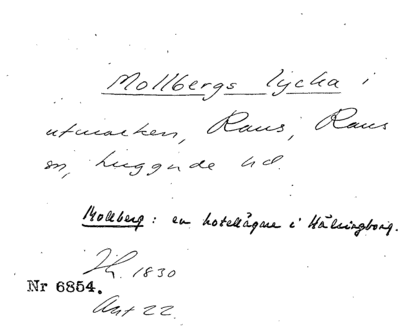 Mollbergs lycka i
utmarken, Raus, Raus
sn, Luggude hd.
Mollberg: en hotellägare i Hälsingborg.
Jh. 1830
Nr 6854.
Ant 22.